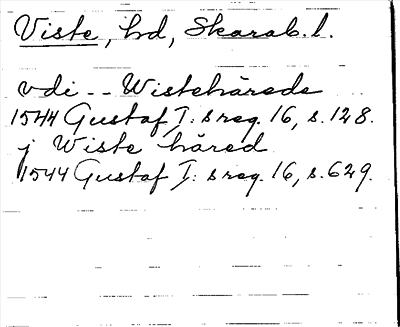 Viste, hd, Skarab. l.
vdi -- Wistehärede
1544 Gustaf I: s reg. 16, s. 128.
j Wiste häred
1544 Gustaf I: s reg. 16, s. 629.